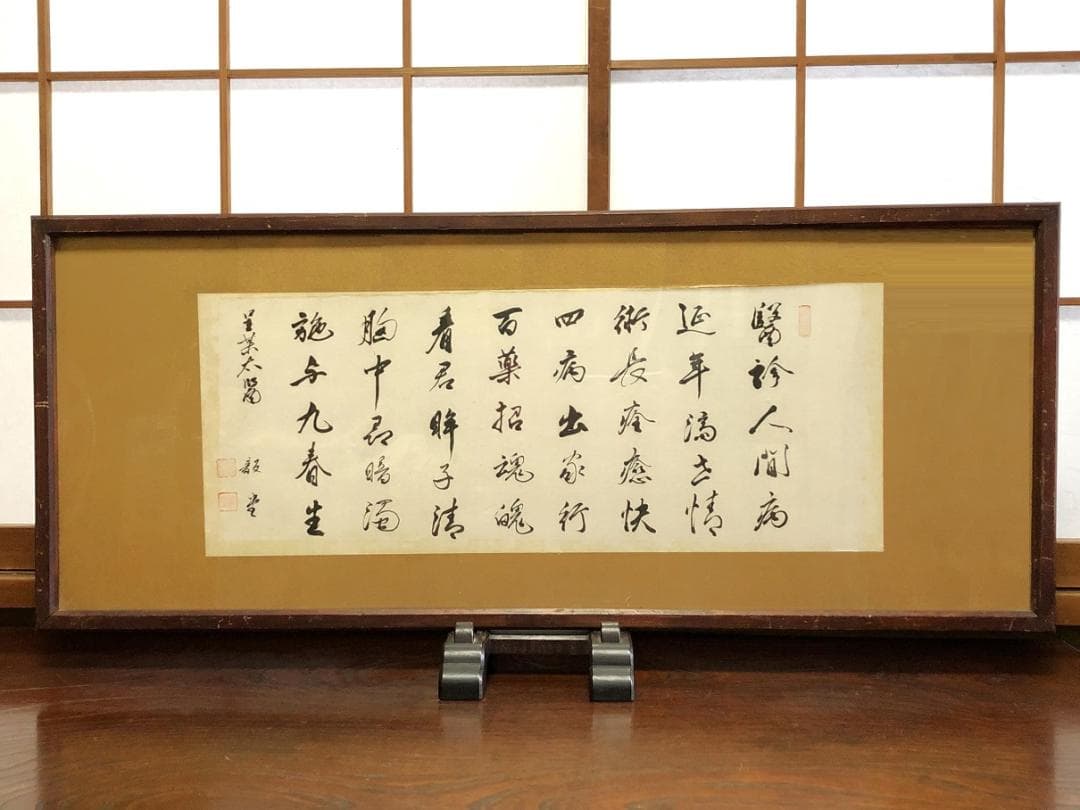 醫診人間病
延年濟世情
術長痊癒快
四病出家行
百藥招魂魄
看君眸子清
胸中尋暗濁
施与九春生
呈葉太醫
毅堂